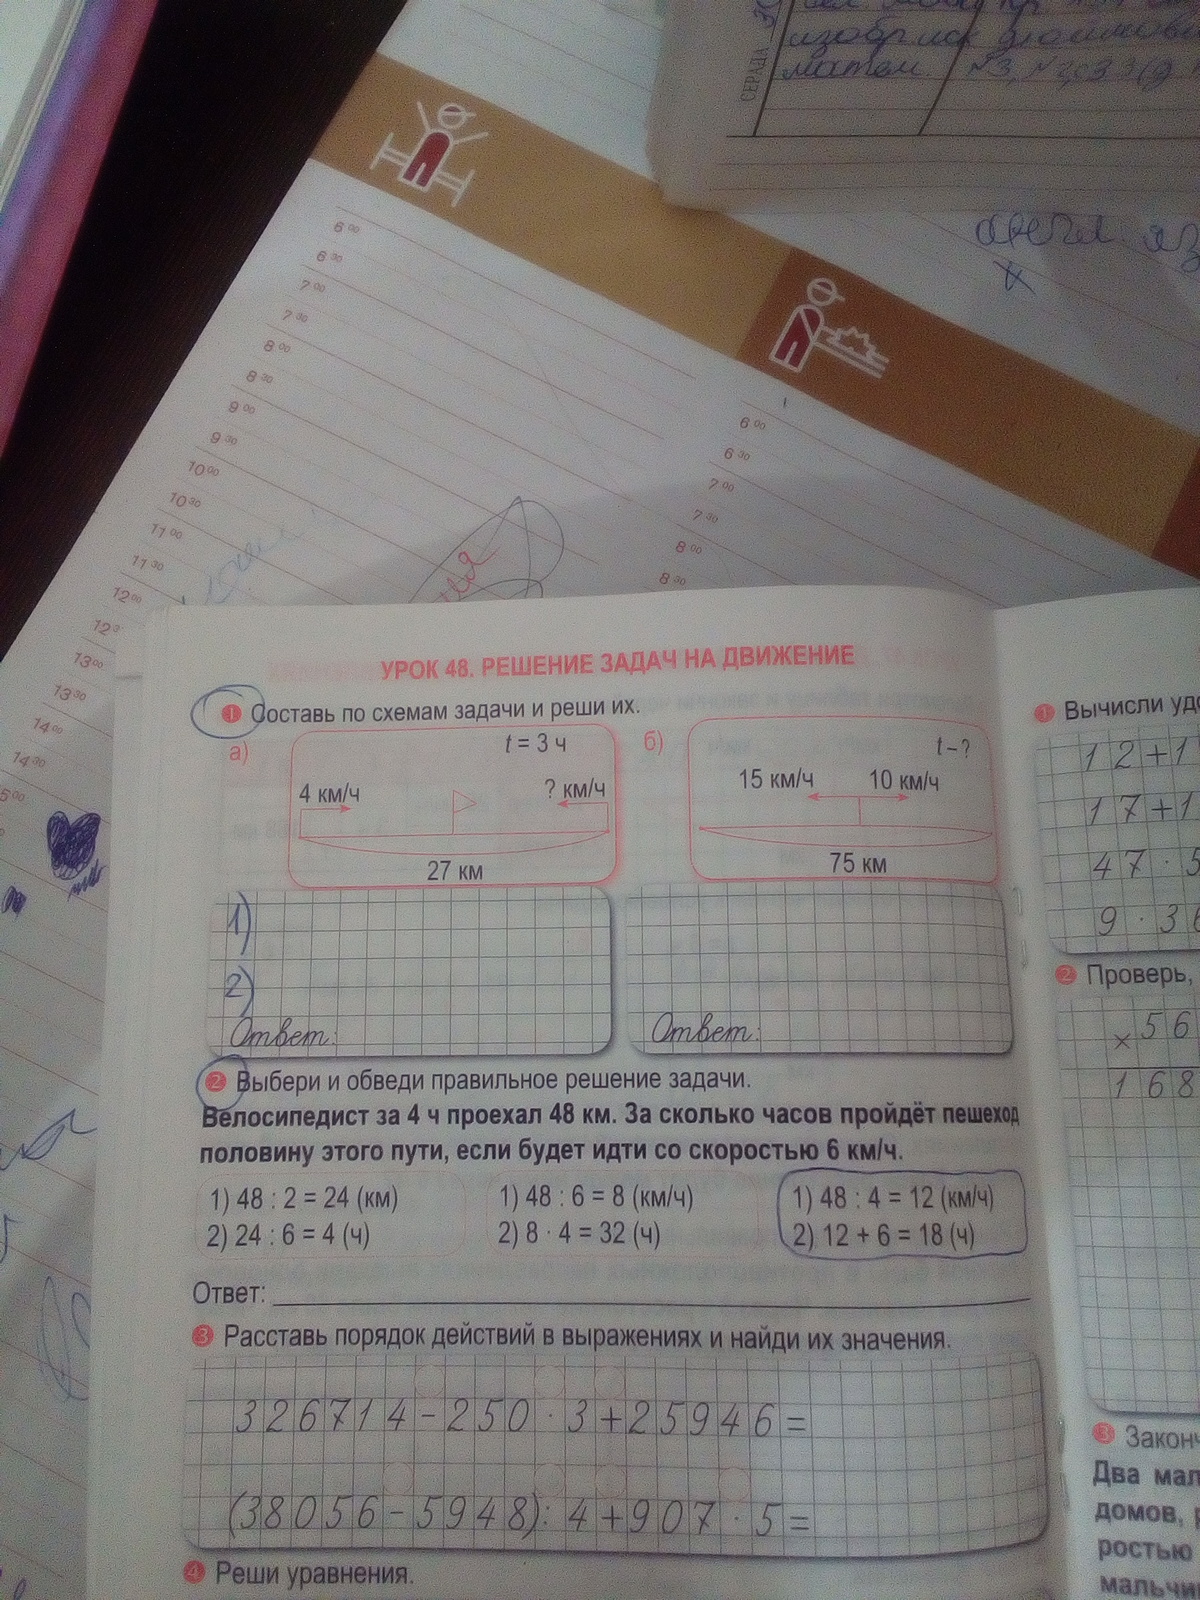 СЕРАДА
изобр
матем. №3, №
6 00
6 30
7 00
7 30
8 00
8 30
9 00
9 30
10 00
10 30
11 00
11 30
12 00
13 00
13 30
14 00
14 30
6 00
6 30
7 00
7 30
8 00
8 30
УРОК 48. РЕШЕНИЕ ЗАДАЧ НА ДВИЖЕНИЕ
1 Составь по схемам задачи и реши их.
а) t = 3 ч
4 км/ч ? км/ч
27 км
б) t – ?
15 км/ч 10 км/ч
75 км
1)
2)
Ответ:
Ответ:
2 Выбери и обведи правильное решение задачи.
Велосипедист за 4 ч проехал 48 км. За сколько часов пройдёт пешеход
половину этого пути, если будет идти со скоростью 6 км/ч.
1) 48 : 2 = 24 (км)
2) 24 : 6 = 4 (ч)
1) 48 : 6 = 8 (км/ч)
2) 8 · 4 = 32 (ч)
1) 48 : 4 = 12 (км/ч)
2) 12 + 6 = 18 (ч)
Ответ:
3 Расставь порядок действий в выражениях и найди их значения.
326714 – 250 · 3 + 25946 =
(38056 – 5948) : 4 + 907 · 5 =
4 Реши уравнения.
1 Вычисли удо
12+1
17+1
47 · 5
9 · 36
2 Проверь,
× 56
168
3 Законч
Два мал
домов, р
ростью
мальчи